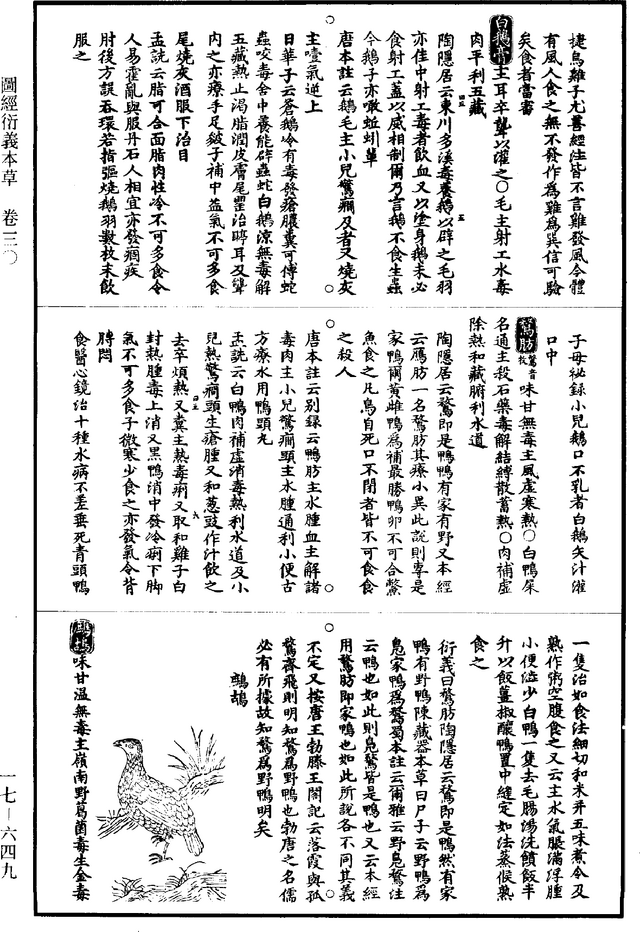 捷烏雞子尤善經注皆不言雞發風今體
有風人食之無不發作為雞為巽信可驗
矣食者當審
白鵝膏主耳卒聾以灌之○毛主射工水毒
肉平利五藏
陶隱居云東川多溪毒養鵝以辟之毛羽
亦佳中射工毒者飲血又以塗身鵝未必
食射工蓋以威相制爾乃言鵝不食生蟲
今鵝子亦啖蚯蚓輩
唐本註云鵝毛主小兒驚癇及者又燒灰
主噎氣逆上
日華子云蒼鵝冷有毒發瘡膿糞可傅蛇
蟲咬毒舍中養能辟蟲蛇白鵝涼無毒解
五藏熱止渴脂潤皮膚尾罌治聤耳及聾
內之亦療手足皴子補中益氣不可多食
尾燒灰酒服下治目
孟詵云脂可合面脂肉性冷不可多食令
人易霍亂與服丹石人相宜亦發痼疾
肘後方誤吞環若指彄燒鵝羽數枚末飲
服之
子母祕錄小兒鵝口不乳者白鵝矢汁灌
口中
鶩肪鶩音牧味甘無毒主風虛寒熱○白鴨屎
名通主殺石藥毒解結縛散蓄熱○肉補虛
除熱和藏腑利水道
陶隱居云鶩即是鴨鴨有家有野又本經
云鴈肪一名鶩肪其療小異此說則專是
家鴨爾黃雌鴨為補最勝鴨卵不可合鱉
魚食之凡鳥自死口不閉者皆不可食食
之殺人
唐本註云別錄云鴨肪主水腫血主解諸
毒肉主小兒驚癇頭主水腫通利小便古
方療水用鴨頭丸
孟詵云白鴨肉補虛消毒熱利水道及小
兒熱驚癇頭生瘡腫又和蔥豉作汁飲之
去卒煩熱又糞主熱毒痢又取和雞子白
封熱腫毒上消又黑鴨消中發冷痢下腳
氣不可多食子微寒少食之亦發氣令背
膊悶
食醫心鏡治十種水病不差垂死青頭鴨
一隻治如食法細切和米并五味煮令及
熟作粥空腹食之又云主水氣脹滿浮腫
小便澁少白鴨一隻去毛腸湯洗饋飯半
升以飯薑椒釀鴨置中縫定如法蒸候熟
食之
衍義曰鶩肪陶隱居云鶩即是鴨然有家
鴨有野鴨陳藏器本草曰尸子云野鴨為
鳧家鴨為鶩蜀本註云爾雅云野鳧鶩注
云鴨也如此則鳧鶩皆是鴨也又云本經
用鶩肪即家鴨也如此所說各不同其義
不定又按唐王勃滕王閣記云落霞與孤
鶩齊飛則明知鶩為野鴨也勃唐之名儒
必有所據故知鶩為野鴨明矣
鷓鴣
鷓鴣味甘溫無毒主嶺南野葛菌毒生金毒
圖經衍義本草 卷三〇
一七—六四九